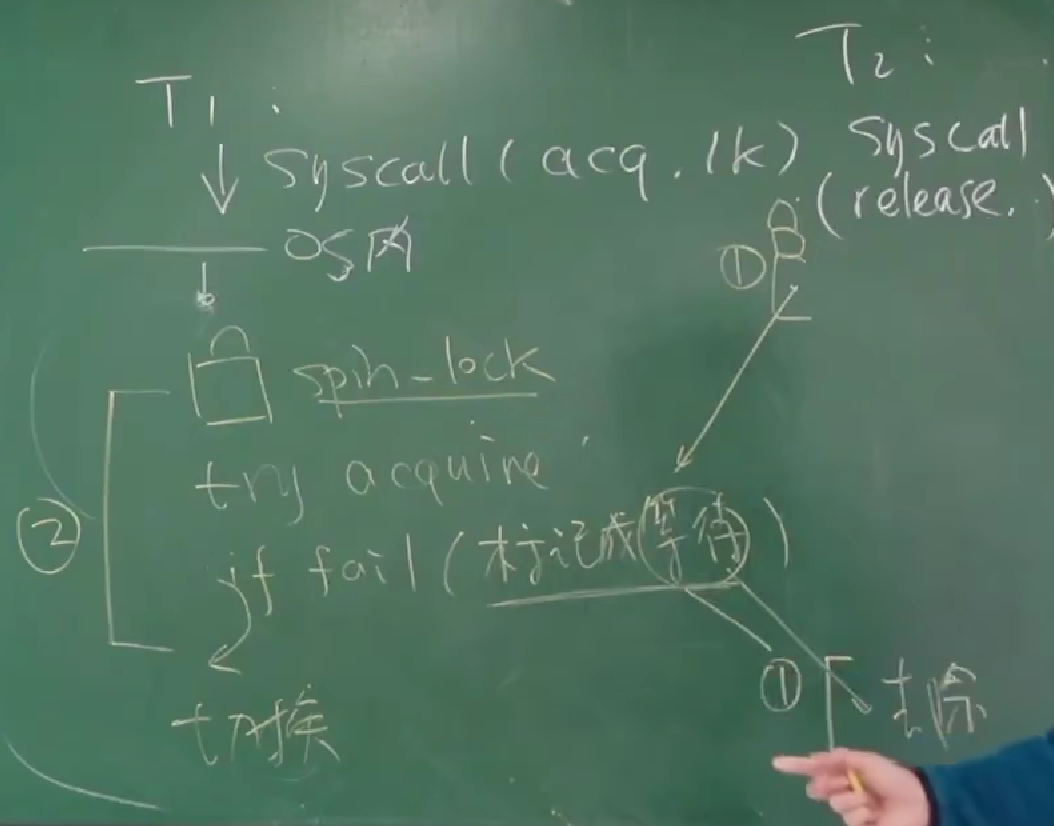 T1:
Syscall(acq.lk)
OS内
spin_lock
try acquire
②
if fail(标记成等待)
切换
T2:
Syscall
(release.)
①
①
去除